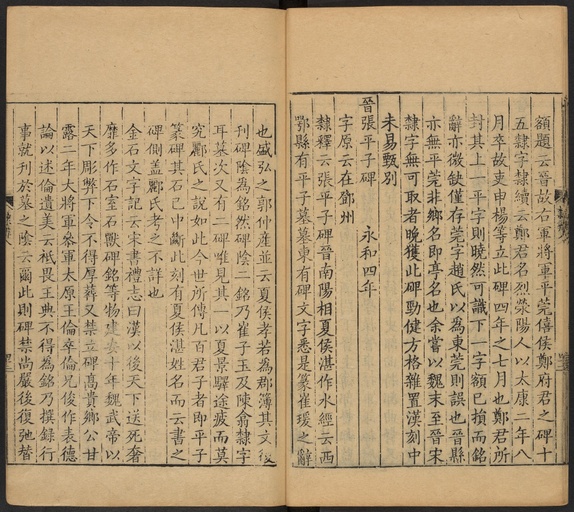 額題云晉故右軍將軍平莞僖侯鄭府君之碑十
五隸字隸續云鄭君名烈滎陽人以太康二年八
月卒故吏申楊等立此碑四年之七月也鄭君所
封其上一平字則曉然可識下一字額已損而銘
辭亦微缺僅存莞字趙氏以爲東莞則誤也晉縣
亦無平莞非鄉名即亭名也余嘗以魏末至晉宋
隸字無可取者晚獲此碑勁健方格雜置漢刻中
未易甄別
晉張平子碑 永和四年
字原云在鄧州
隸釋云張平子碑晉南陽相夏侯湛作水經云西
鄂縣有平子墓墓東有碑文字悉是篆崔瑗之辭
也盛弘之郭仲產並云夏侯孝若爲郡簿其文復
刊碑陰爲銘然碑陰二銘乃崔子玉及陳翕隸字
耳墓次又有二碑唯見其一以夏景驛途疲而莫
究酈氏之說如此今世所傳凡百君子者即平子
篆碑其石已中斷此刻有夏侯湛姓名而云書之
碑側蓋酈氏考之不詳也
金石文字記云宋書禮志曰漢以後天下送死奢
靡多作石室石獸碑銘等物建安十年魏武帝以
天下彫弊下令不得厚葬又禁立碑高貴鄉公甘
露二年大將軍參軍太原王倫卒倫兄俊作表德
論以述倫遺美云祗畏王典不得爲銘乃撰錄行
事就刊於墓之陰云爾此則碑禁尚嚴後復弛替